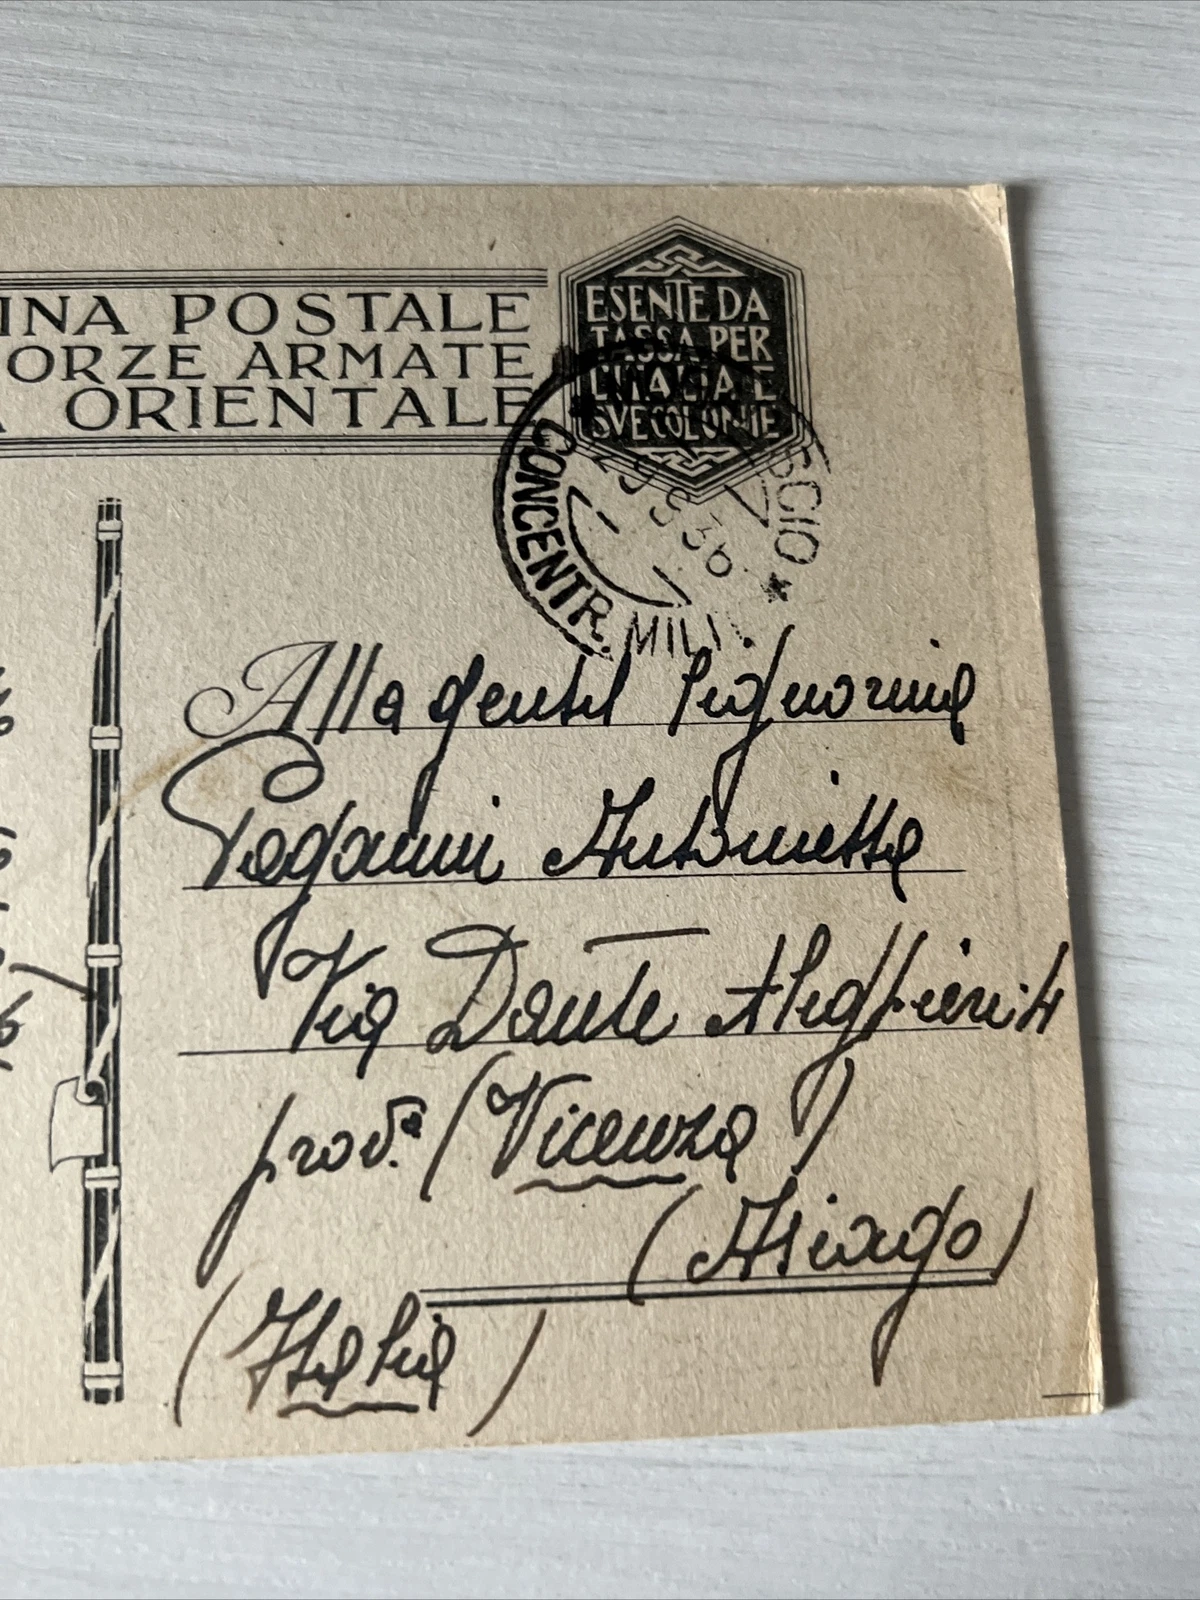 INA POSTALE
ORZE ARMATE
A ORIENTALE
ESENTE DA
TASSA PER
L'ITALIA E
SVE COLONIE
CONCENTR. MILIT.
36
Alla gentil Signorina
Antonietta
Via Dante Alighieri 4
prov.ª (Vicenza)
(Asiago)
(Italia)